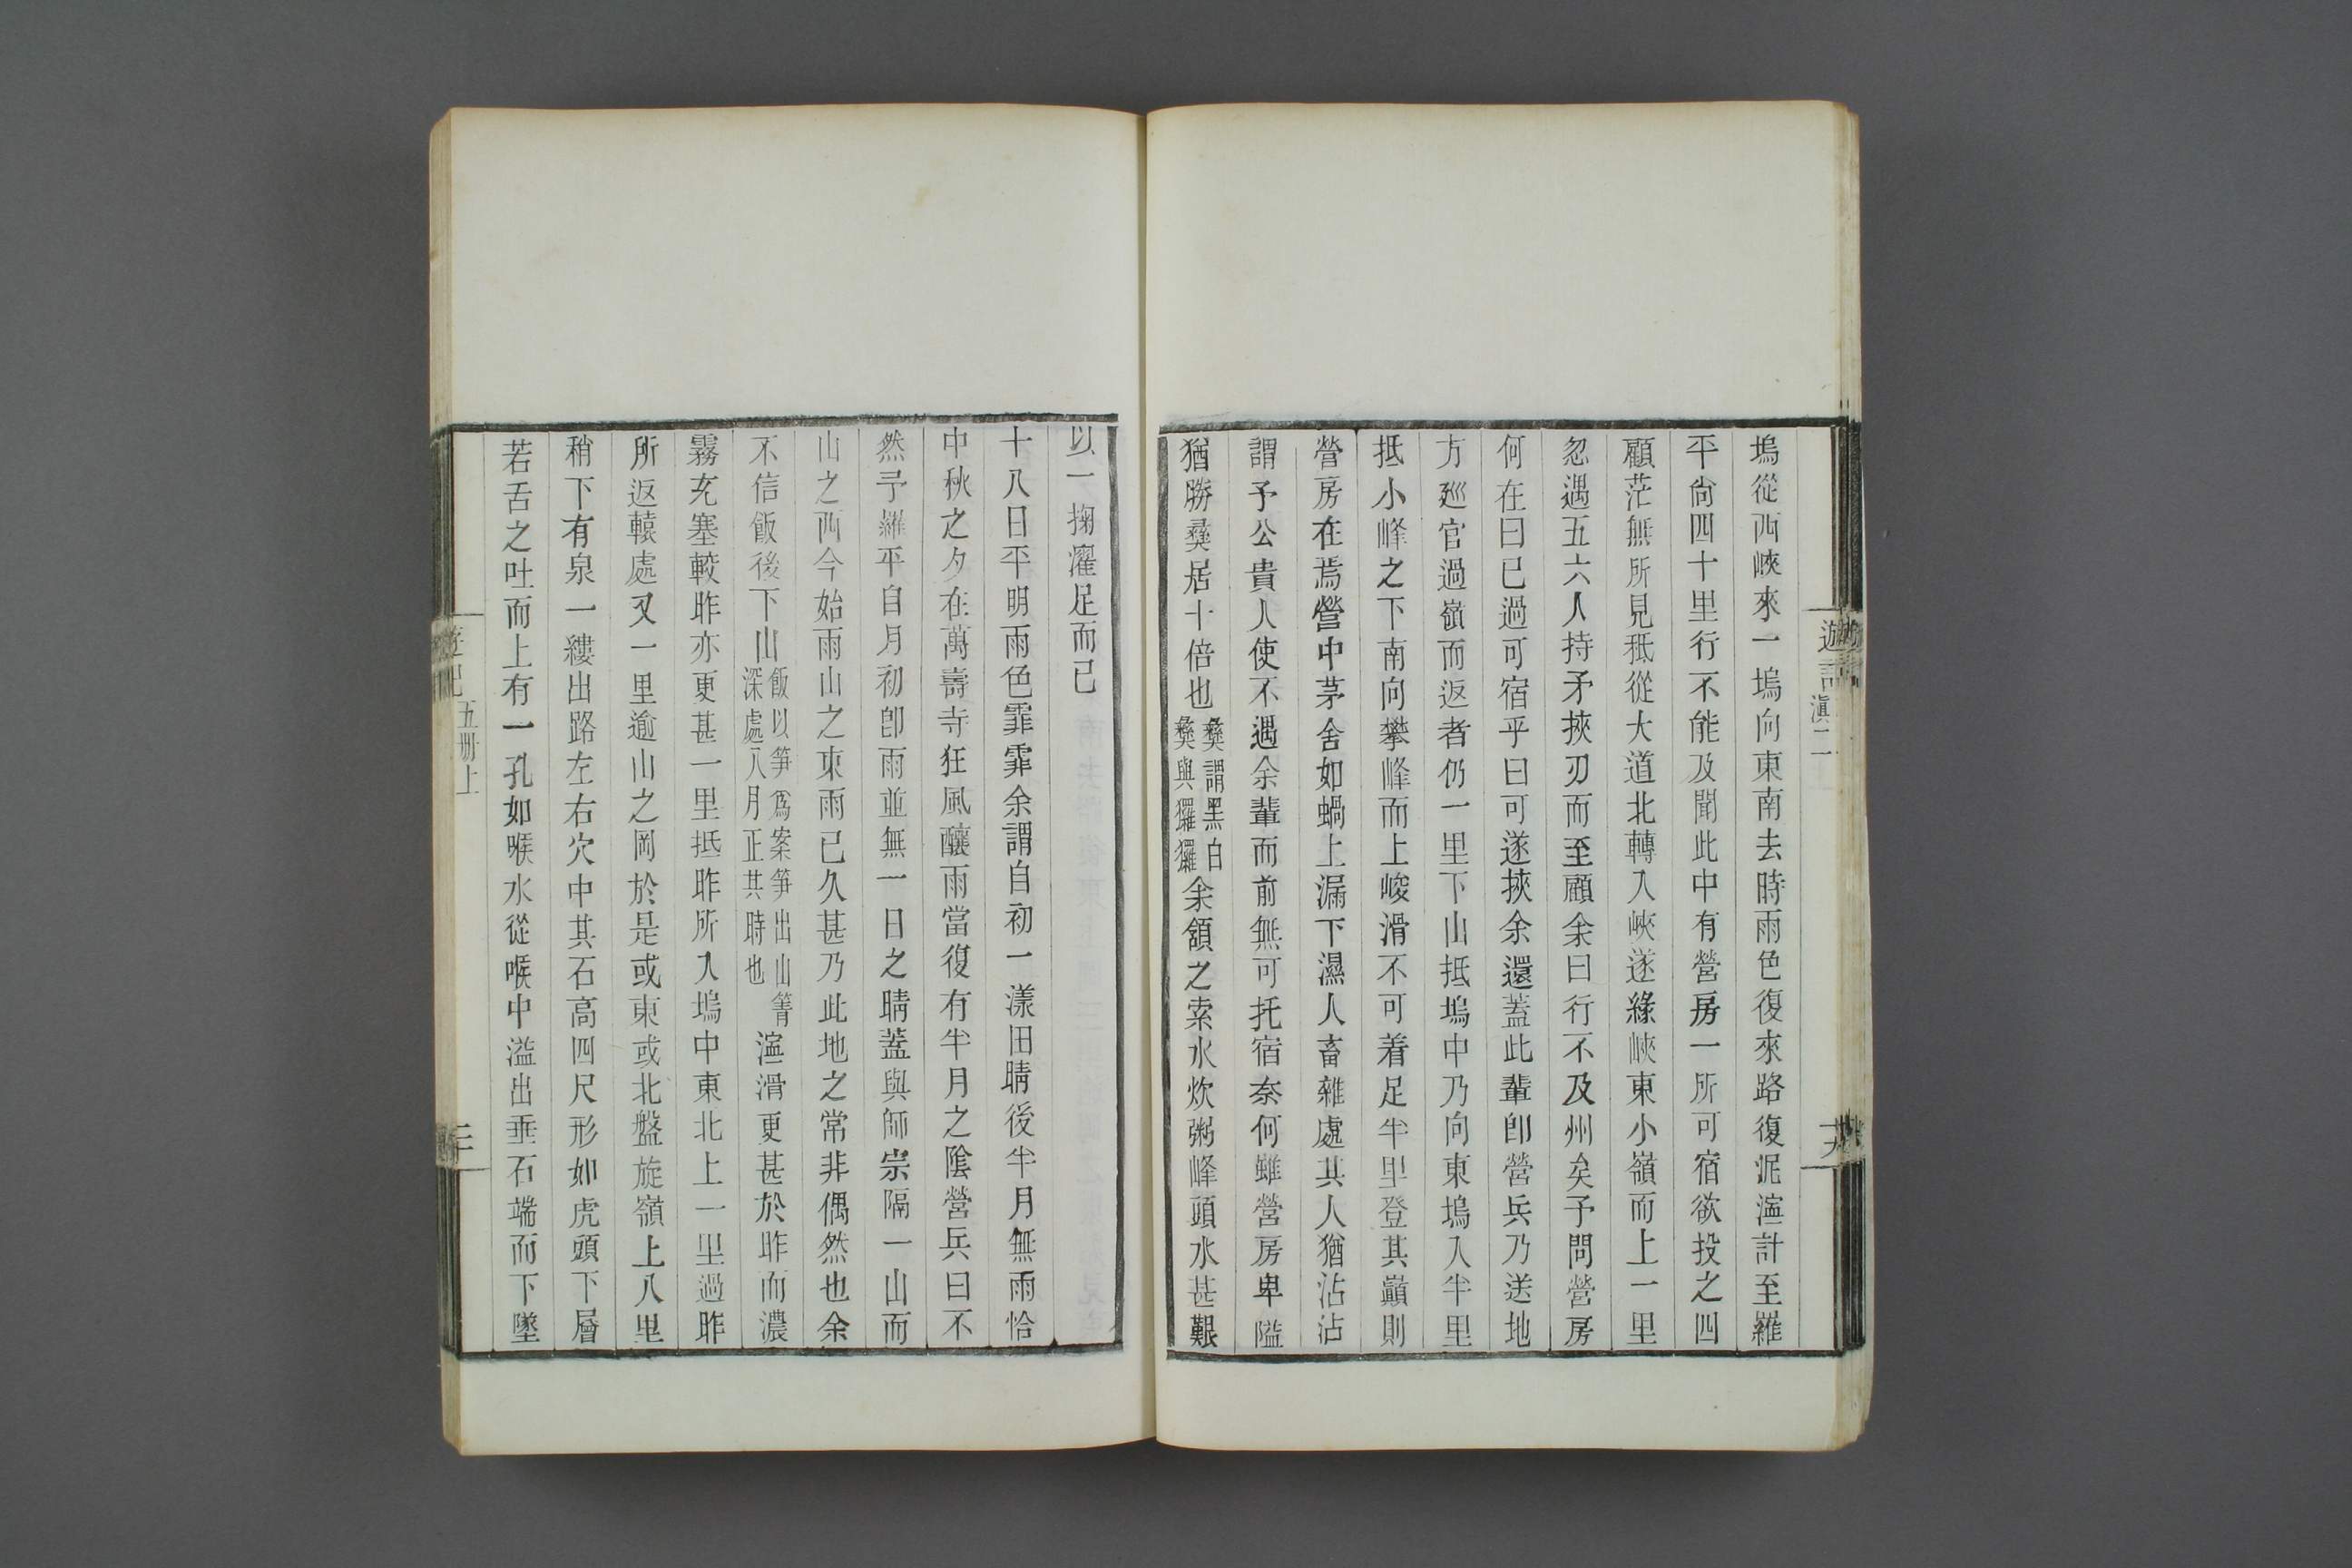 塢從西峽來一塢向東南去時雨色復來路復泥濘計至羅
平尙四十里行不能及聞此中有營房一所可宿欲投之四
顧茫無所見秪從大道北轉入峽遂緣峽東小嶺而上一里
忽遇五六人持矛挾刃而至顧余曰行不及州矣予問營房
何在曰已過可宿乎曰可遂挾余還蓋此輩卽營兵乃送地
方廵官過嶺而返者仍一里下山抵塢中乃向東塢入半里
抵小峰之下南向攀峰而上峻滑不可着足半里登其巔則
營房在焉營中茅舍如蝸上漏下濕人畜雜處其人猶沾沾
謂予公貴人使不遇余輩而前無可托宿奈何雖營房卑隘
猶勝彜居十倍也彜謂黑白彜與玀玀余頷之索水炊粥峰頭水甚艱
以一掬濯足而已
十八日平明雨色霏霏余謂自初一漾田晴後半月無雨恰
中秋之夕在萬壽寺狂風釀雨當復有半月之陰營兵曰不
然予羅平自月初卽雨並無一日之晴蓋與師宗隔一山而
山之西今始雨山之東雨已久甚乃此地之常非偶然也余
不信飯後下山飯以笋爲案笋出山箐深處八月正其時也濘滑更甚於昨而濃
霧充塞較昨亦更甚一里抵昨所入塢中東北上一里過昨
所返轅處又一里逾山之岡於是或東或北盤旋嶺上八里
稍下有泉一縷出路左右穴中其石高四尺形如虎頭下層
若舌之吐而上有一孔如喉水從喉中溢出垂石端而下墜
遊記
滇二
遊記
五册上